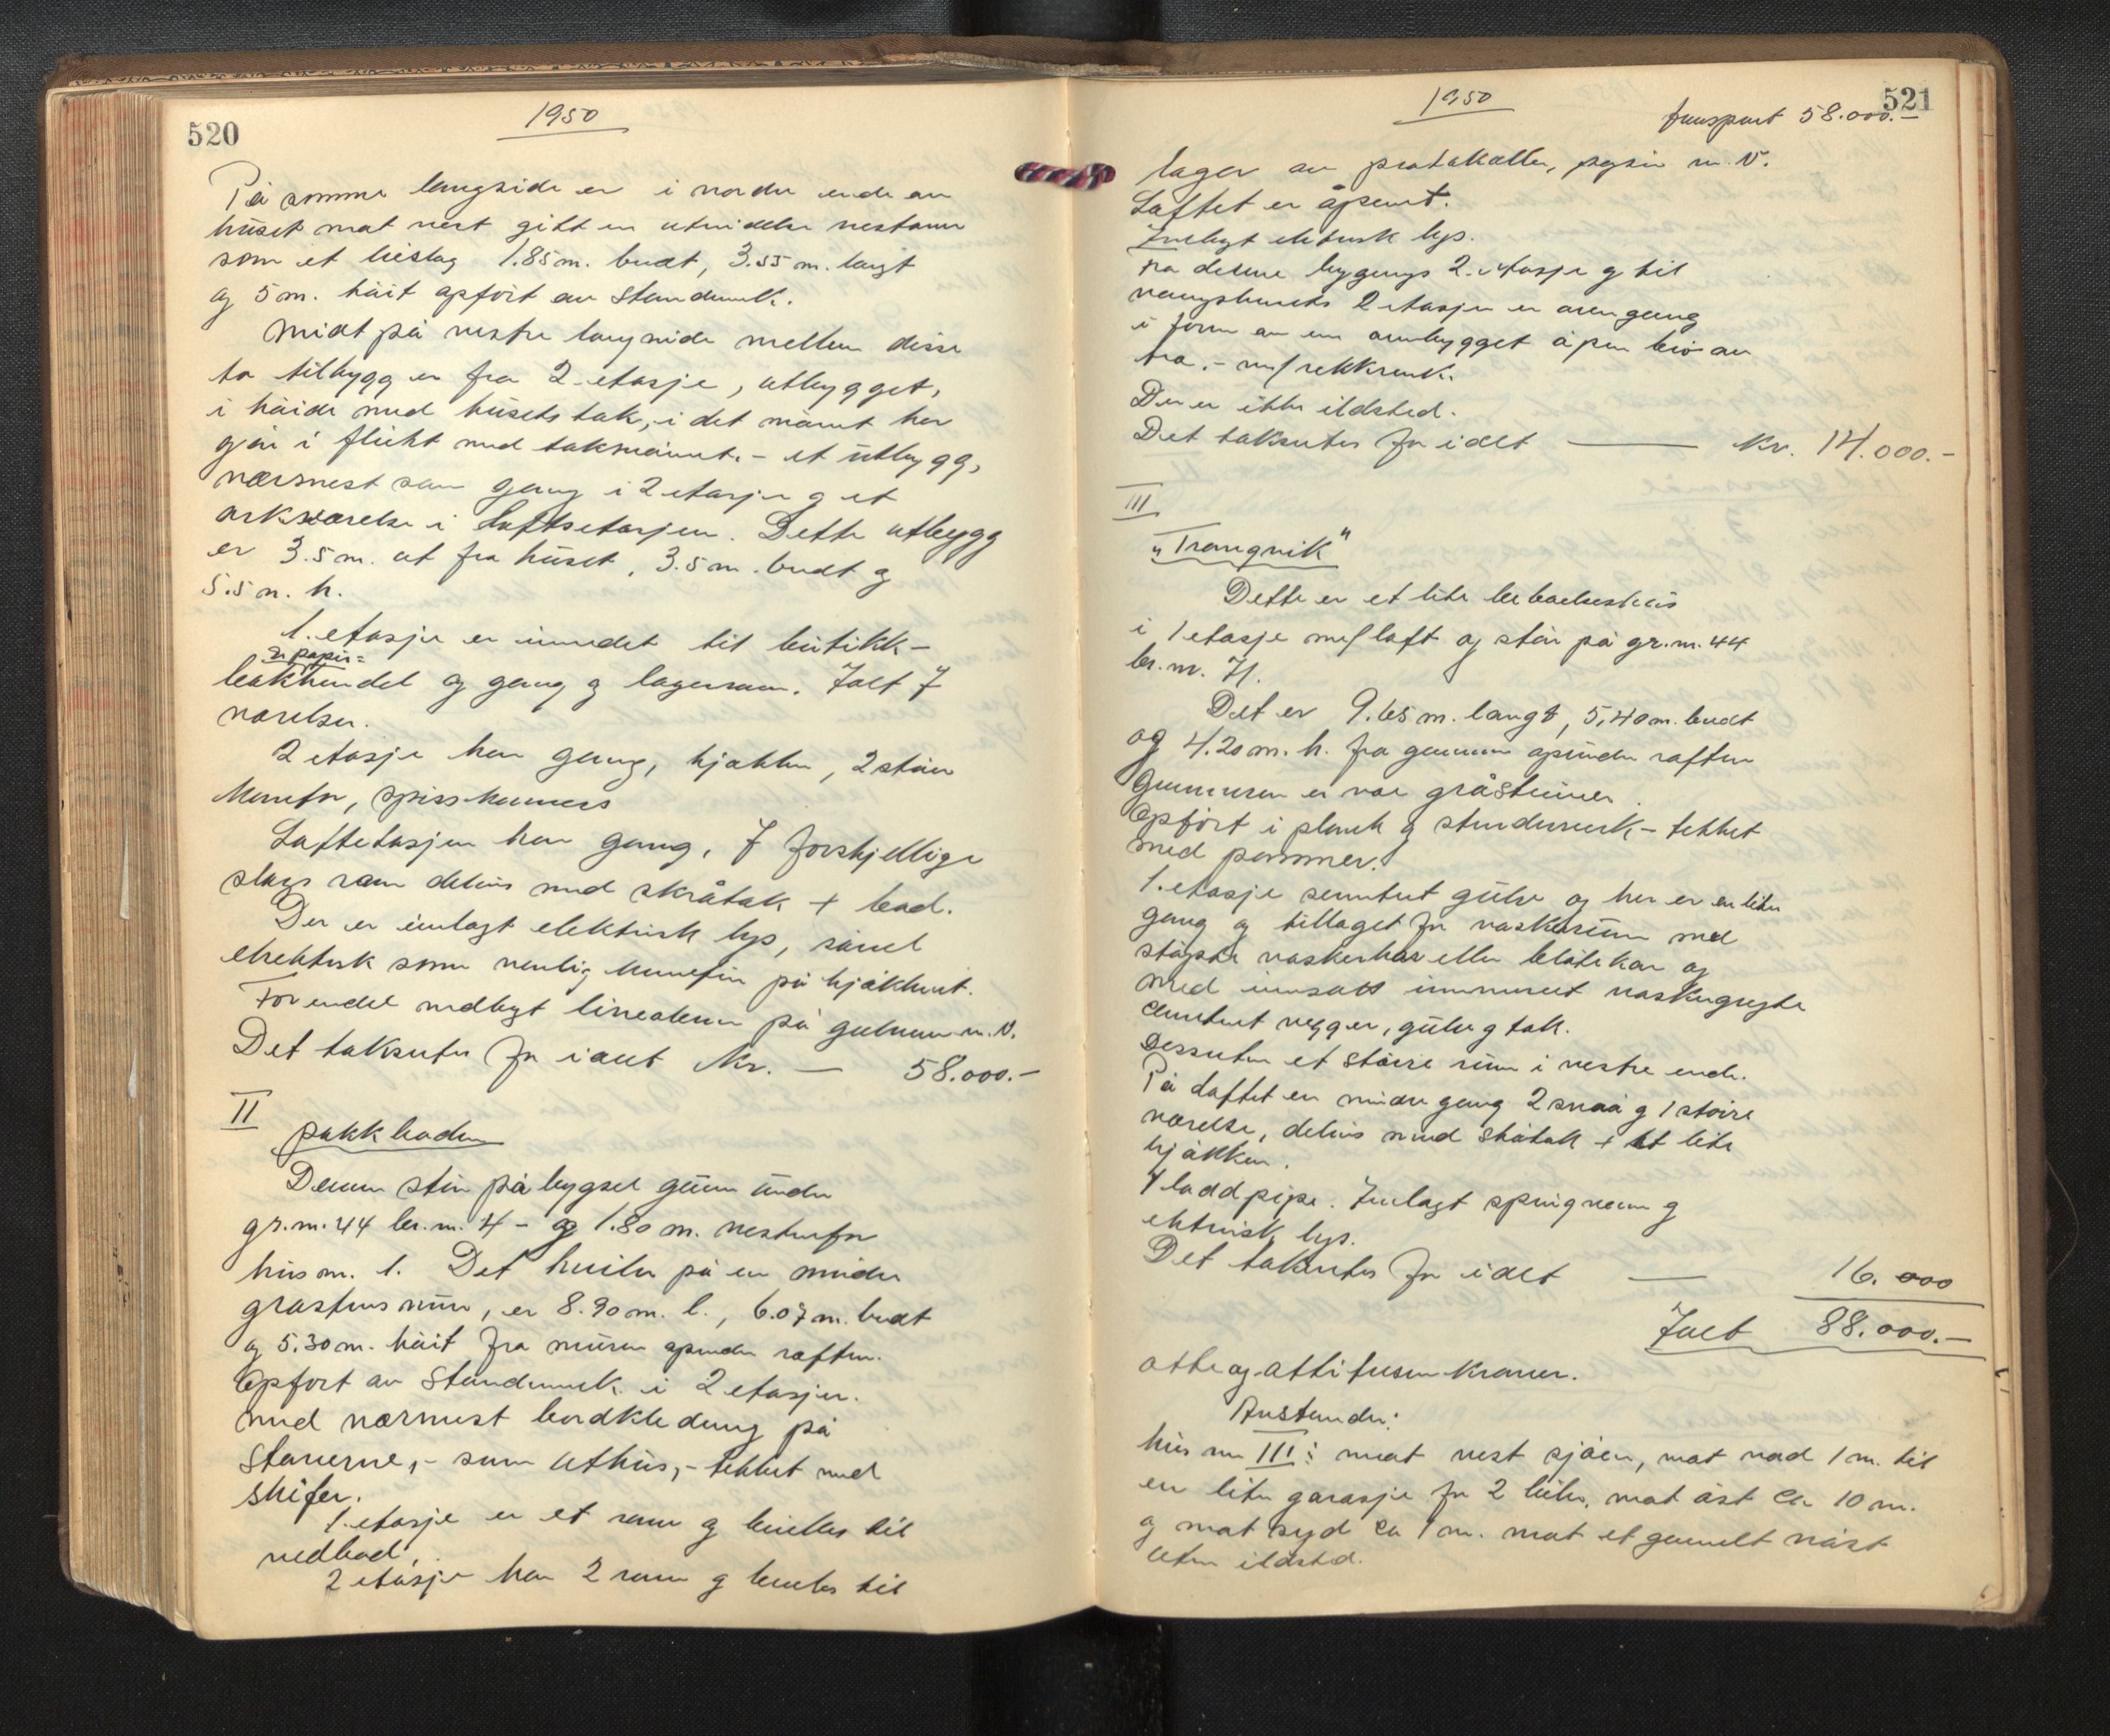 520
1950
På samme langside er i nordre ende av
huset mot vest gitt en utvidelse nestamm
som et bislag 1.85 m. bredt, 3.55 m. langt
og 5 m. høit opført av standerverk.
Midt på vestre langside mellem disse
to tilbygg er fra 2-etasje, utbygget,
i høide med husets tak, i det mønet her
går i flukt med takmønet. - et utbygg,
nærmest som gang i 2 etasje og et
arkværelse i loftsetasjen. Dette utbygg
er 3.5 m. ut fra huset, 3.5 m. bredt og
5.5 m. h.
1. etasje er innredet til butikk-
& papir=
bokhandel og gang og lagerrum. Ialt 7
værelser.
2 etasje har gang, kjøkken, 2 stuer
kammefor, spisskammers
Loftetasjen har gang, 7 forskjellige
slags rum delvis med skråtak + bad.
Der er innlagt elektrisk lys, såvel
elektrisk som vanlig komfyr på kjøkkenet.
For endel nedlagt linoleum på gulvene m.v.
Det takseres for i alt kr. — 58.000.-
II
pakkboden
Denne står på bygsel grunn under
gr.m. 44 br.m. 4 - og 1.80 m. vestenfor
hus nr. 1. Det hviler på en mindre
gråstens mur, er 8.90 m. l., 6.07 m. bredt
og 5.30 m. høit fra muren opunder raften.
Opfort av standerverk i 2 etasjer.
med nærmest bordkledning på
staverne, - som uthus, - tekket med
skifer.
1. etasje er et rum og benyttes til
vedbod.
2 etasje har 2 rum og benyttes til
521
1950
transport 58.000.-
lager av protokoller, papir m. v.
Loftet er åpent.
Innlagt elektrisk lys.
Fra denne bygnings 2. etasje og til
vaangshusets 2 etasje er overgang
i form av en ovenbygget åpen bro av
tre. - m/ rekkverk.
Der er ikke ildsted.
Det takseres for i alt — kr. 14.000.-
III
„Trangvik"
Dette er et lite beboelseshus
i 1 etasje m/ loft og står på gr.m. 44
br.m. 71.
Det er 9.65 m. langt, 5,40 m. bredt
og 4.20 m. h. fra grunnen opunder raften
Grunmuren er var gråstener.
Opført i plank og standerverk - tekket
med panner.
1. etasje sementert gulv og her er en liten
gang og tillaget for vaskerum med
støpte vaskerkar eller bløtekar og
med innsatt innmuret vaskegryte
Cementert vegger, gulv og tak.
Dessuten et større rum i vestre ende.
På loftet en mindre gang 2 små og 1 større
værelse, delvis med skråtak + et lite
kjøkken.
1 ladd pipe. Innlagt springvann og
elektrisk lys.
Det takseres for i alt — 16.000
Ialt 88.000.-
otte og otti tusen kroner.
Avstander:
hus nr III: mot vest sjøen, mot nord 1 m. til
en liten garasje for 2 biler, mot øst ca 10 m.
og mot syd ca 1 m. mot et gammelt naust
uten ildsted.